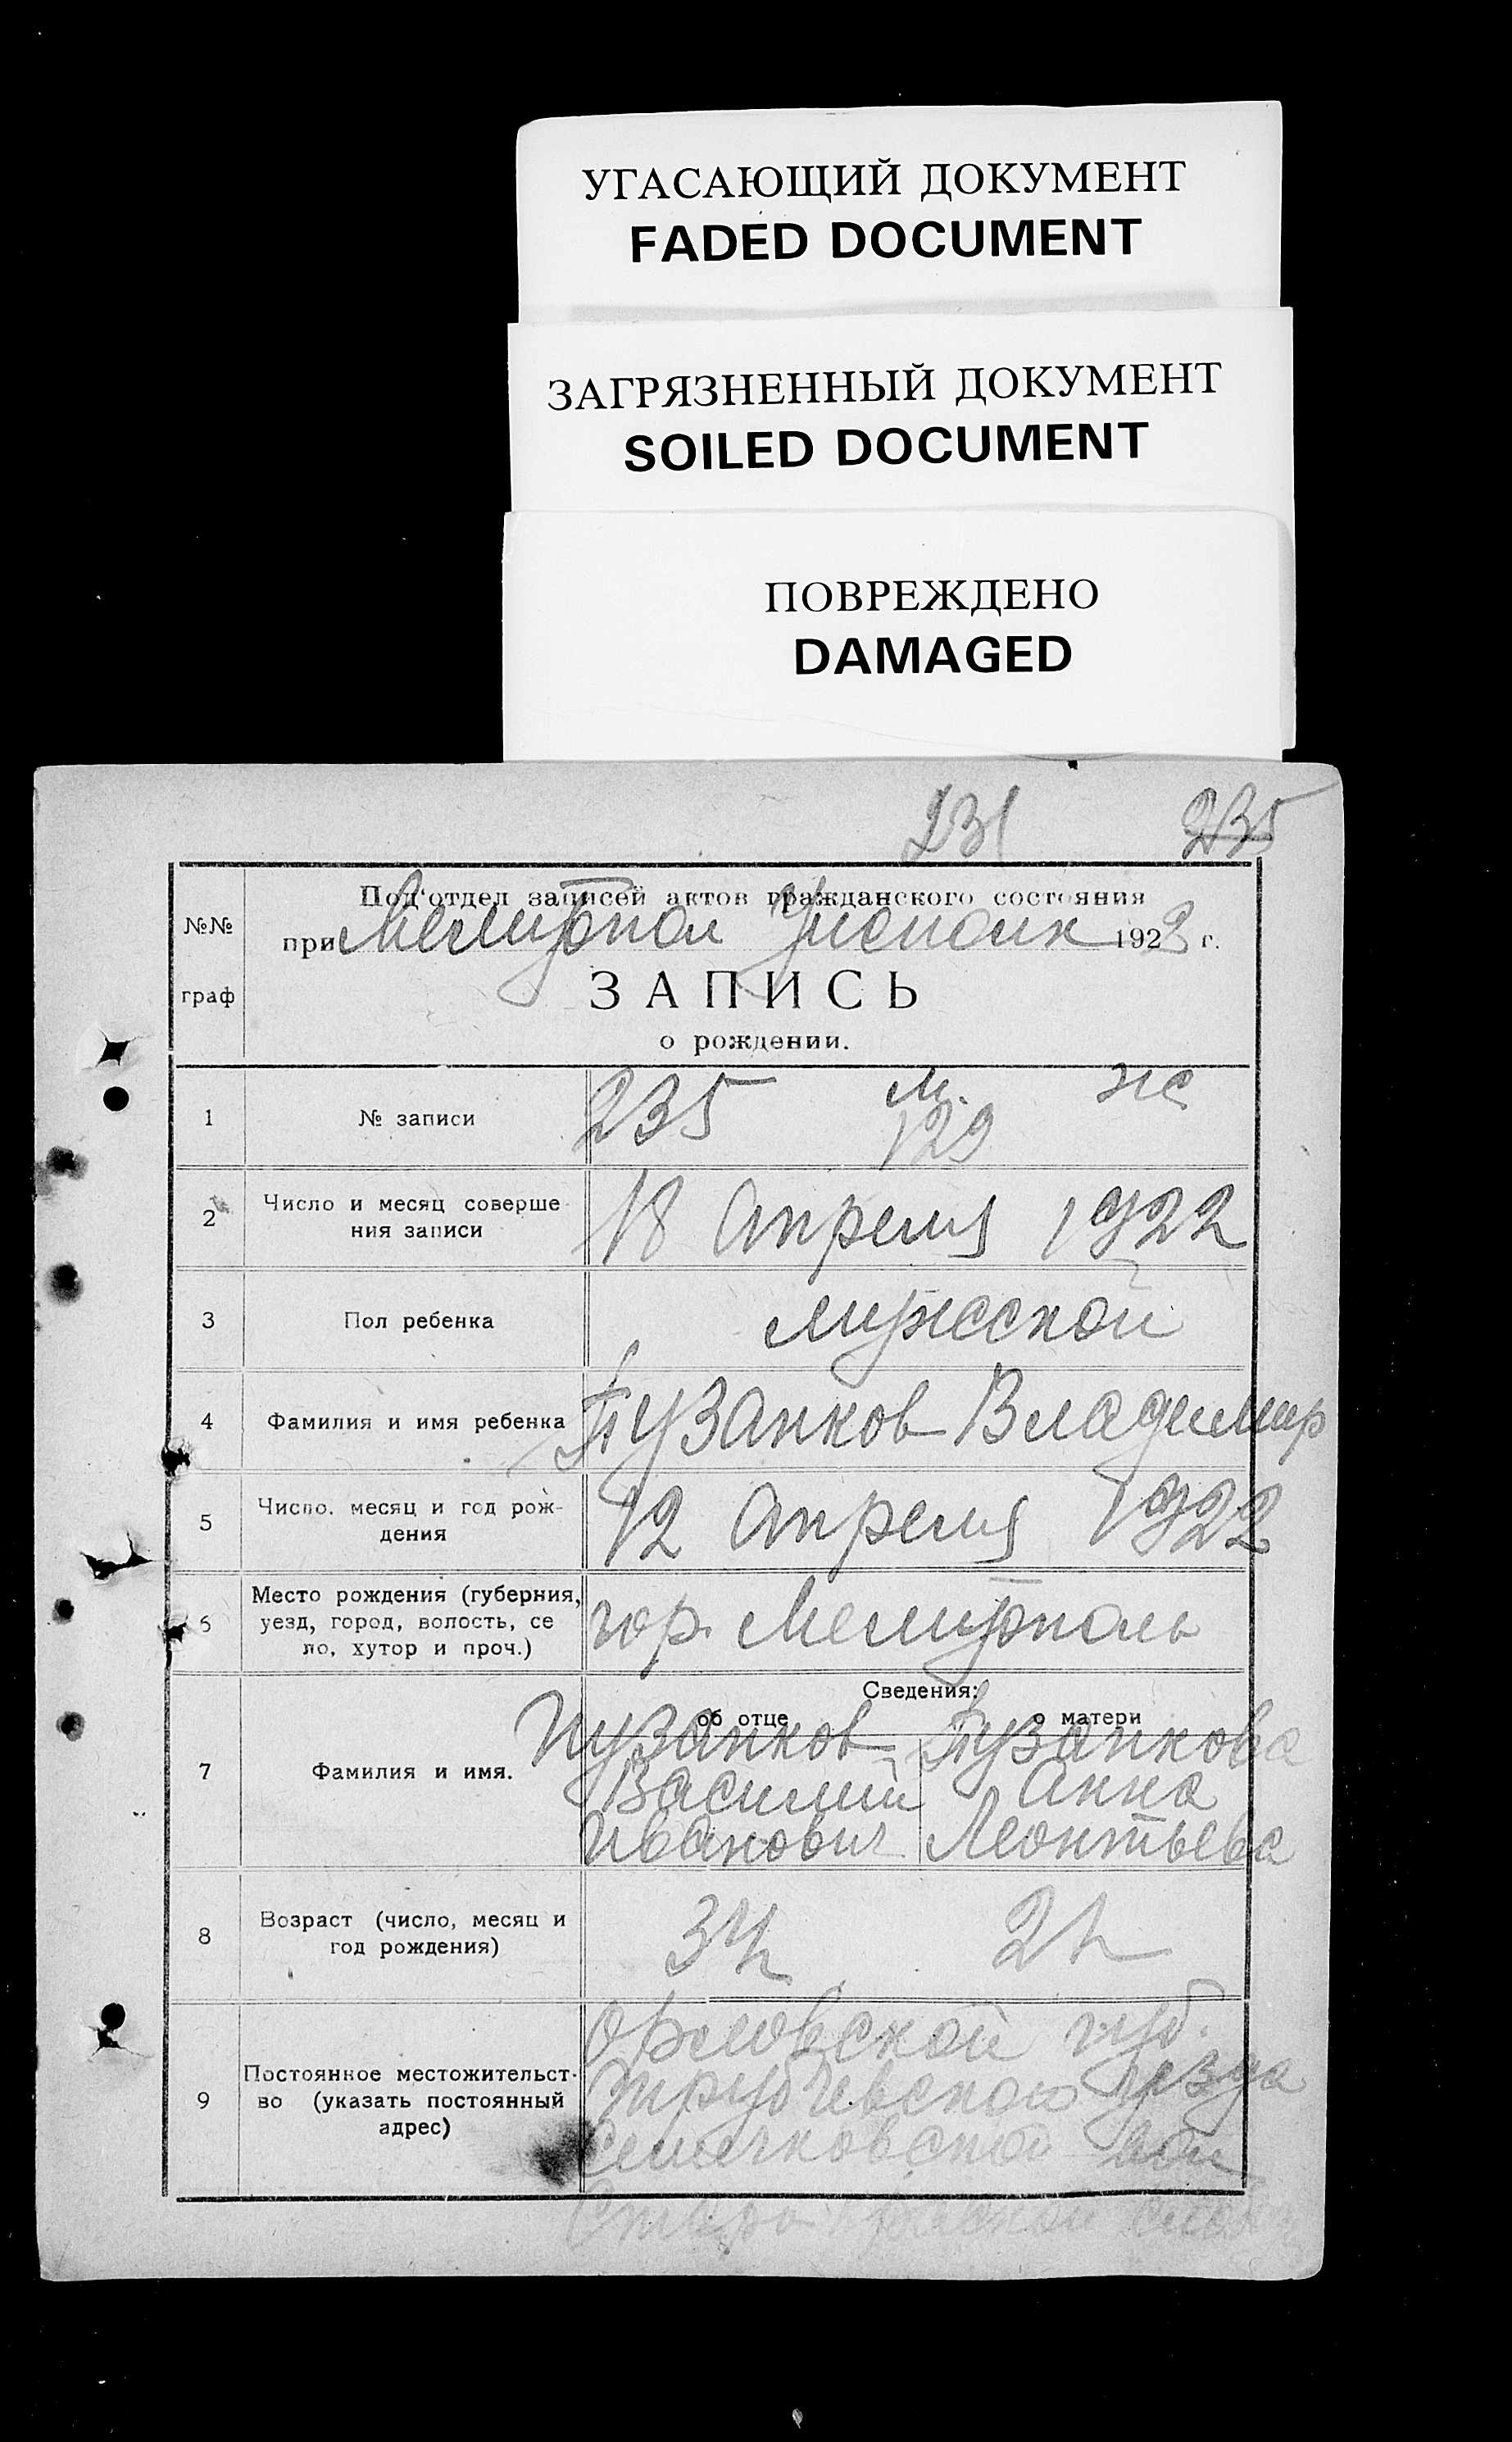 УГАСАЮЩИЙ ДОКУМЕНТ
FADED DOCUMENT
ЗАГРЯЗНЕННЫЙ ДОКУМЕНТ
SOILED DOCUMENT
ПОВРЕЖДЕНО
DAMAGED
231 235
Под'отдел записей актов гражданского состояния
№№
при Мелитопол Уисполк 1922 г.
граф
ЗАПИСЬ
о рождении.
1 № записи 235 м. 129 же
2 Число и месяц соверше
ния записи
18 Апреля 1922
3 Пол ребенка мужеской
4 Фамилия и имя ребенка Пузанков Владимир
5 Число. месяц и год рож-
дения
12 Апреля 1922
6 Место рождения (губерния,
уезд, город, волость, се
ло, хутор и проч.)
гор. Мелитополь
Сведения:
об отце о матери
7 Фамилия и имя.
Пузанков Пузанкова
Василий Анна
Иванович Леонтьева
8 Возраст (число, месяц и
год рождения)
34 21
9 Постоянное местожительст-
во (указать постоянный
адрес)
Орловской губ.
Трубчевского уезда
Семячковской вол